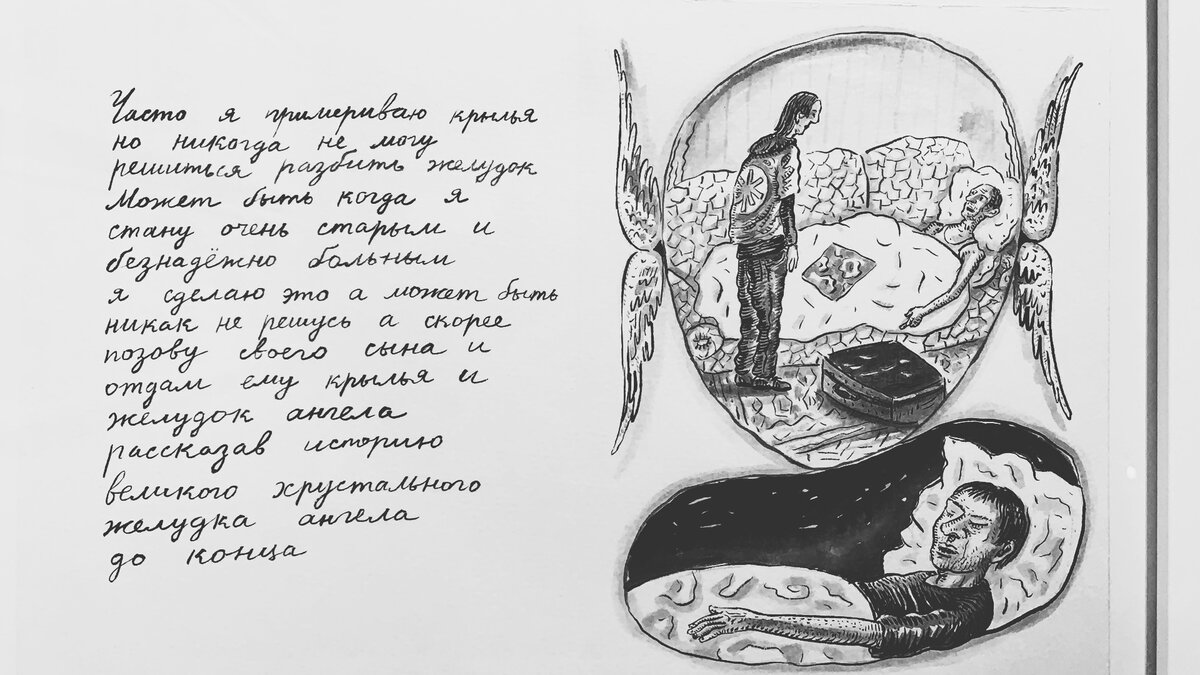 Часто я примериваю крылья
но никогда не могу
решиться разбить желудок
Может быть когда я
стану очень старым и
безнадёжно больным
я сделаю это а может быть
никак не решусь а скорее
позову своего сына и
отдам ему крылья и
желудок ангела
рассказав историю
великого хрустального
желудка ангела
до конца